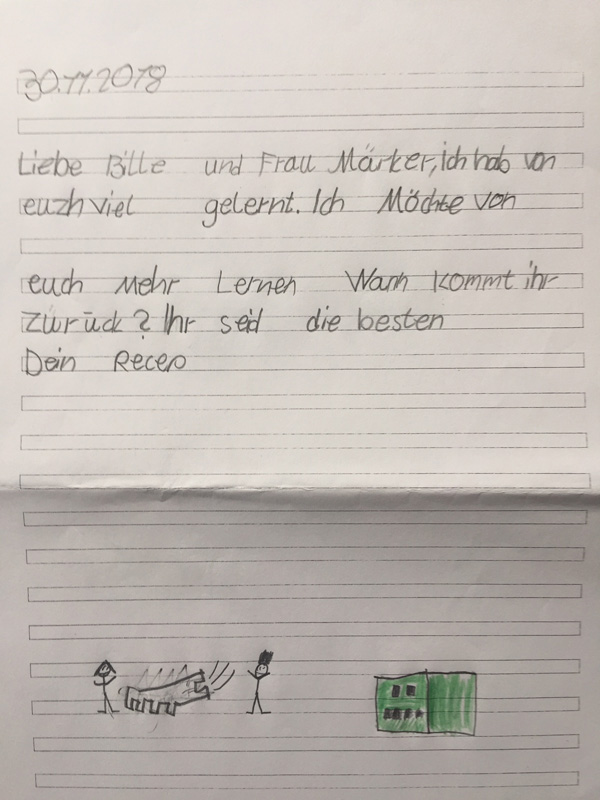 30.11.2018
Liebe Bille und Frau Märker, ich hab von
euzh viel gelernt. Ich Möchte von
euch Mehr Lernen Wann kommt ihr
Zurück? Ihr seid die besten
Dein Recep